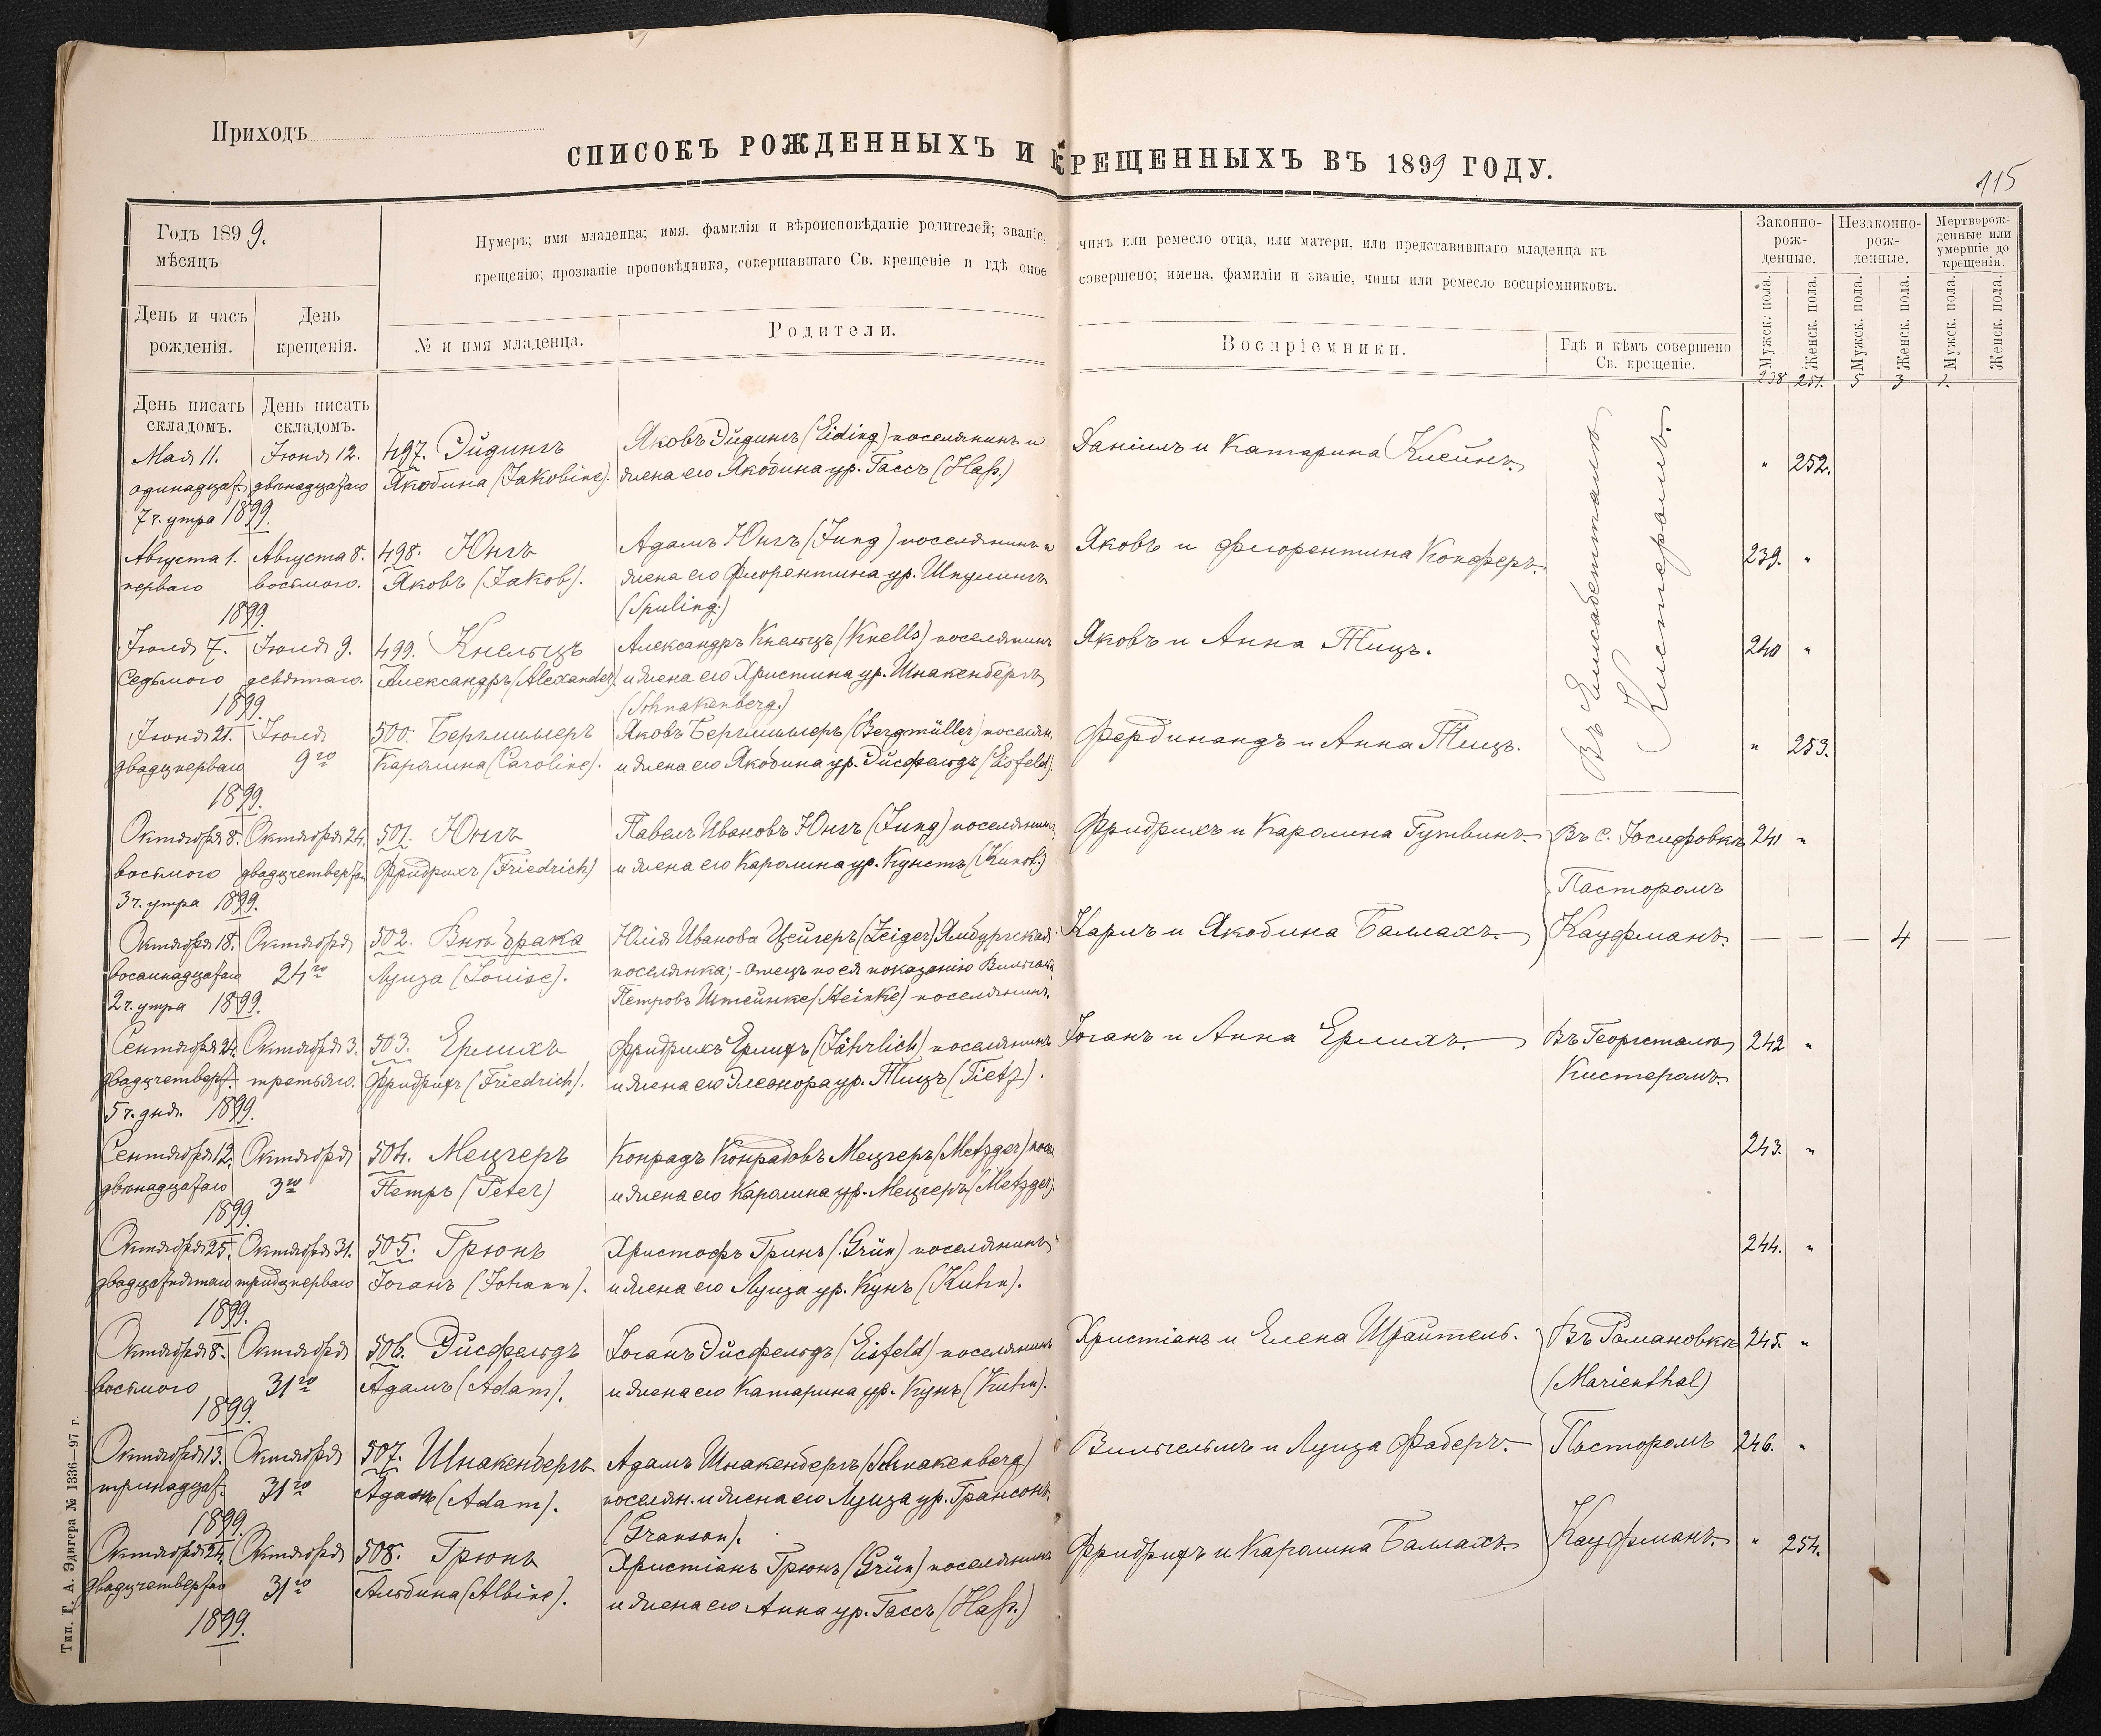 Приходъ
СПИСОКЪ РОЖДЕННЫХЪ И КРЕЩЕННЫХЪ ВЪ 1899 ГОДУ.
115
Годъ 1899.
мѣсяцъ
Нумеръ; имя младенца; имя, фамилія и вѣроисповѣданіе родителей; званіе, чинъ или ремесло отца, или матери, или представившаго младенца къ
крещенію; прозваніе проповѣдника, совершавшаго Св. крещеніе и гдѣ оное совершено; имена, фамиліи и званіе, чины или ремесло воспріемниковъ.
Законно-
рож-
денные.
Незаконно-
рож-
денные.
Мертворож-
денные или
умершіе до
крещенія.
День и часъ
рожденія.
День
крещенія.
№ и имя младенца.
Родители.
Воспріемники.
Гдѣ и кѣмъ совершено
Св. крещеніе.
Мужск. пола.
Женск. пола.
Мужск. пола.
Женск. пола.
Мужск. пола.
Женск. пола.
238 251. 5 3 1.
День писать
складомъ.
День писать
складомъ.
Мая 11. Іюня 12. 497. Эйдингъ Яковъ Эйдингъ (Eiding) поселянинъ и Даніилъ и Катарина Клейнъ. " 252.
одинадцат. двѣнадцатаго Якобина (Jakobine). жена его Якобина ур. Гассъ (Haß.)
7 ч. утра 1899.
Въ Елисабетталѣ
Кистеромъ.
Августа 1. Августа 8. 498. Юнгъ Адамъ Юнгъ (Jung) поселянинъ и Яковъ и Флорентина Конферъ. 239. "
перваго восьмого. Яковъ (Jakob). жена его Флорентина ур. Шпулингъ
1899. (Spuling.)
Іюля 7. Іюля 9. 499. Кнельцъ Александръ Кнельцъ (Knells) поселянинъ Яковъ и Анна Тицъ. 240 "
седьмого девятаго. Александръ (Alexander) и жена его Христина ур. Шнакенбергъ
1899. (Schnakenberg.)
Іюня 21. Іюля 500. Бергмиллеръ Яковъ Бергмиллеръ (Bergmüller) поселян. Фердинандъ и Анна Тицъ. " 253.
двадцперваго 9го Каролина (Caroline). и жена его Якобина ур. Эйсфельдъ (Eisfeld).
1899.
Октября 8. Октября 24. 501. Юнгъ Павелъ Ивановъ Юнгъ (Jung) поселянинъ Фридрихъ и Каролина Гутвинъ. Въ с. Іосифовкѣ 241 "
восьмого двадцчетвертаго Фридрихъ (Friedrich) и жена его Каролина ур. Кунстъ
3 ч. утра 1899. Пасторомъ
Октября 18. Октября 502. Внѣ брака Юлія Иванова Цейгеръ (Zeiger) Ямбургская Карлъ и Якобина Баллахъ. Кауфманъ. — — — 4 — —
восемнадцатаго 24го Луиза (Louise). поселянка; - отецъ по ея показанію Вильгельмъ
2 ч. утра 1899. Петровъ Штейнке (Steinke) поселянинъ.
Сентября 24. Октября 3. 503. Ерлихъ Фридрихъ Ерлихъ (Jährlich) поселянинъ Іоганъ и Анна Ерлихъ. Въ Георгсталѣ 242 "
двадцчетверт. третьяго. Фридрихъ (Friedrich). и жена его Элеонора ур. Тицъ (Tietz). Кистеромъ.
5 ч. дня. 1899.
Сентября 12. Октября 504. Мецгеръ Конрадъ Конрадовъ Мецгеръ (Metzger) посел. 243. "
двѣнадцатаго 3го Петръ (Peter) и жена его Каролина ур. Мецгеръ (Metzger).
1899.
Октября 25. Октября 31. 505. Грюнъ Христофъ Гринъ (Grün) поселянинъ 244. "
двадцатпятаго тридцперваго Іоганъ (Johann). и жена его Луиза ур. Кунъ (Kuhn).
1899.
Октября 8. Октября 506. Эйсфельдъ Іоганъ Эйсфельдъ (Eisfeld) поселянинъ Христіанъ и Елена Шрайтель. Въ Романовкѣ 245. "
восьмого 31го Адамъ (Adam). и жена его Катарина ур. Кунъ (Kuhn). (Marienthal)
1899.
Октября 13. Октября 507. Шнакенбергъ Адамъ Шнакенбергъ (Schnakenberg) Вильгельмъ и Луиза Фаберъ. Пасторомъ 246. "
тринадцат. 31го Адамъ (Adam). поселян. и жена его Луиза ур. Грансонъ
1899. (Granson).
Октября 24. Октября 508. Грюнъ Христіанъ Грюнъ (Grün) поселянинъ Фридрихъ и Каролина Баллахъ. Кауфманъ. " 254.
двадцчетвертаго 31го Альбина (Albine). и жена его Анна ур. Гассъ (Haß.)
1899.
Тип. Г. А. Эдигера № 1336—97 г.